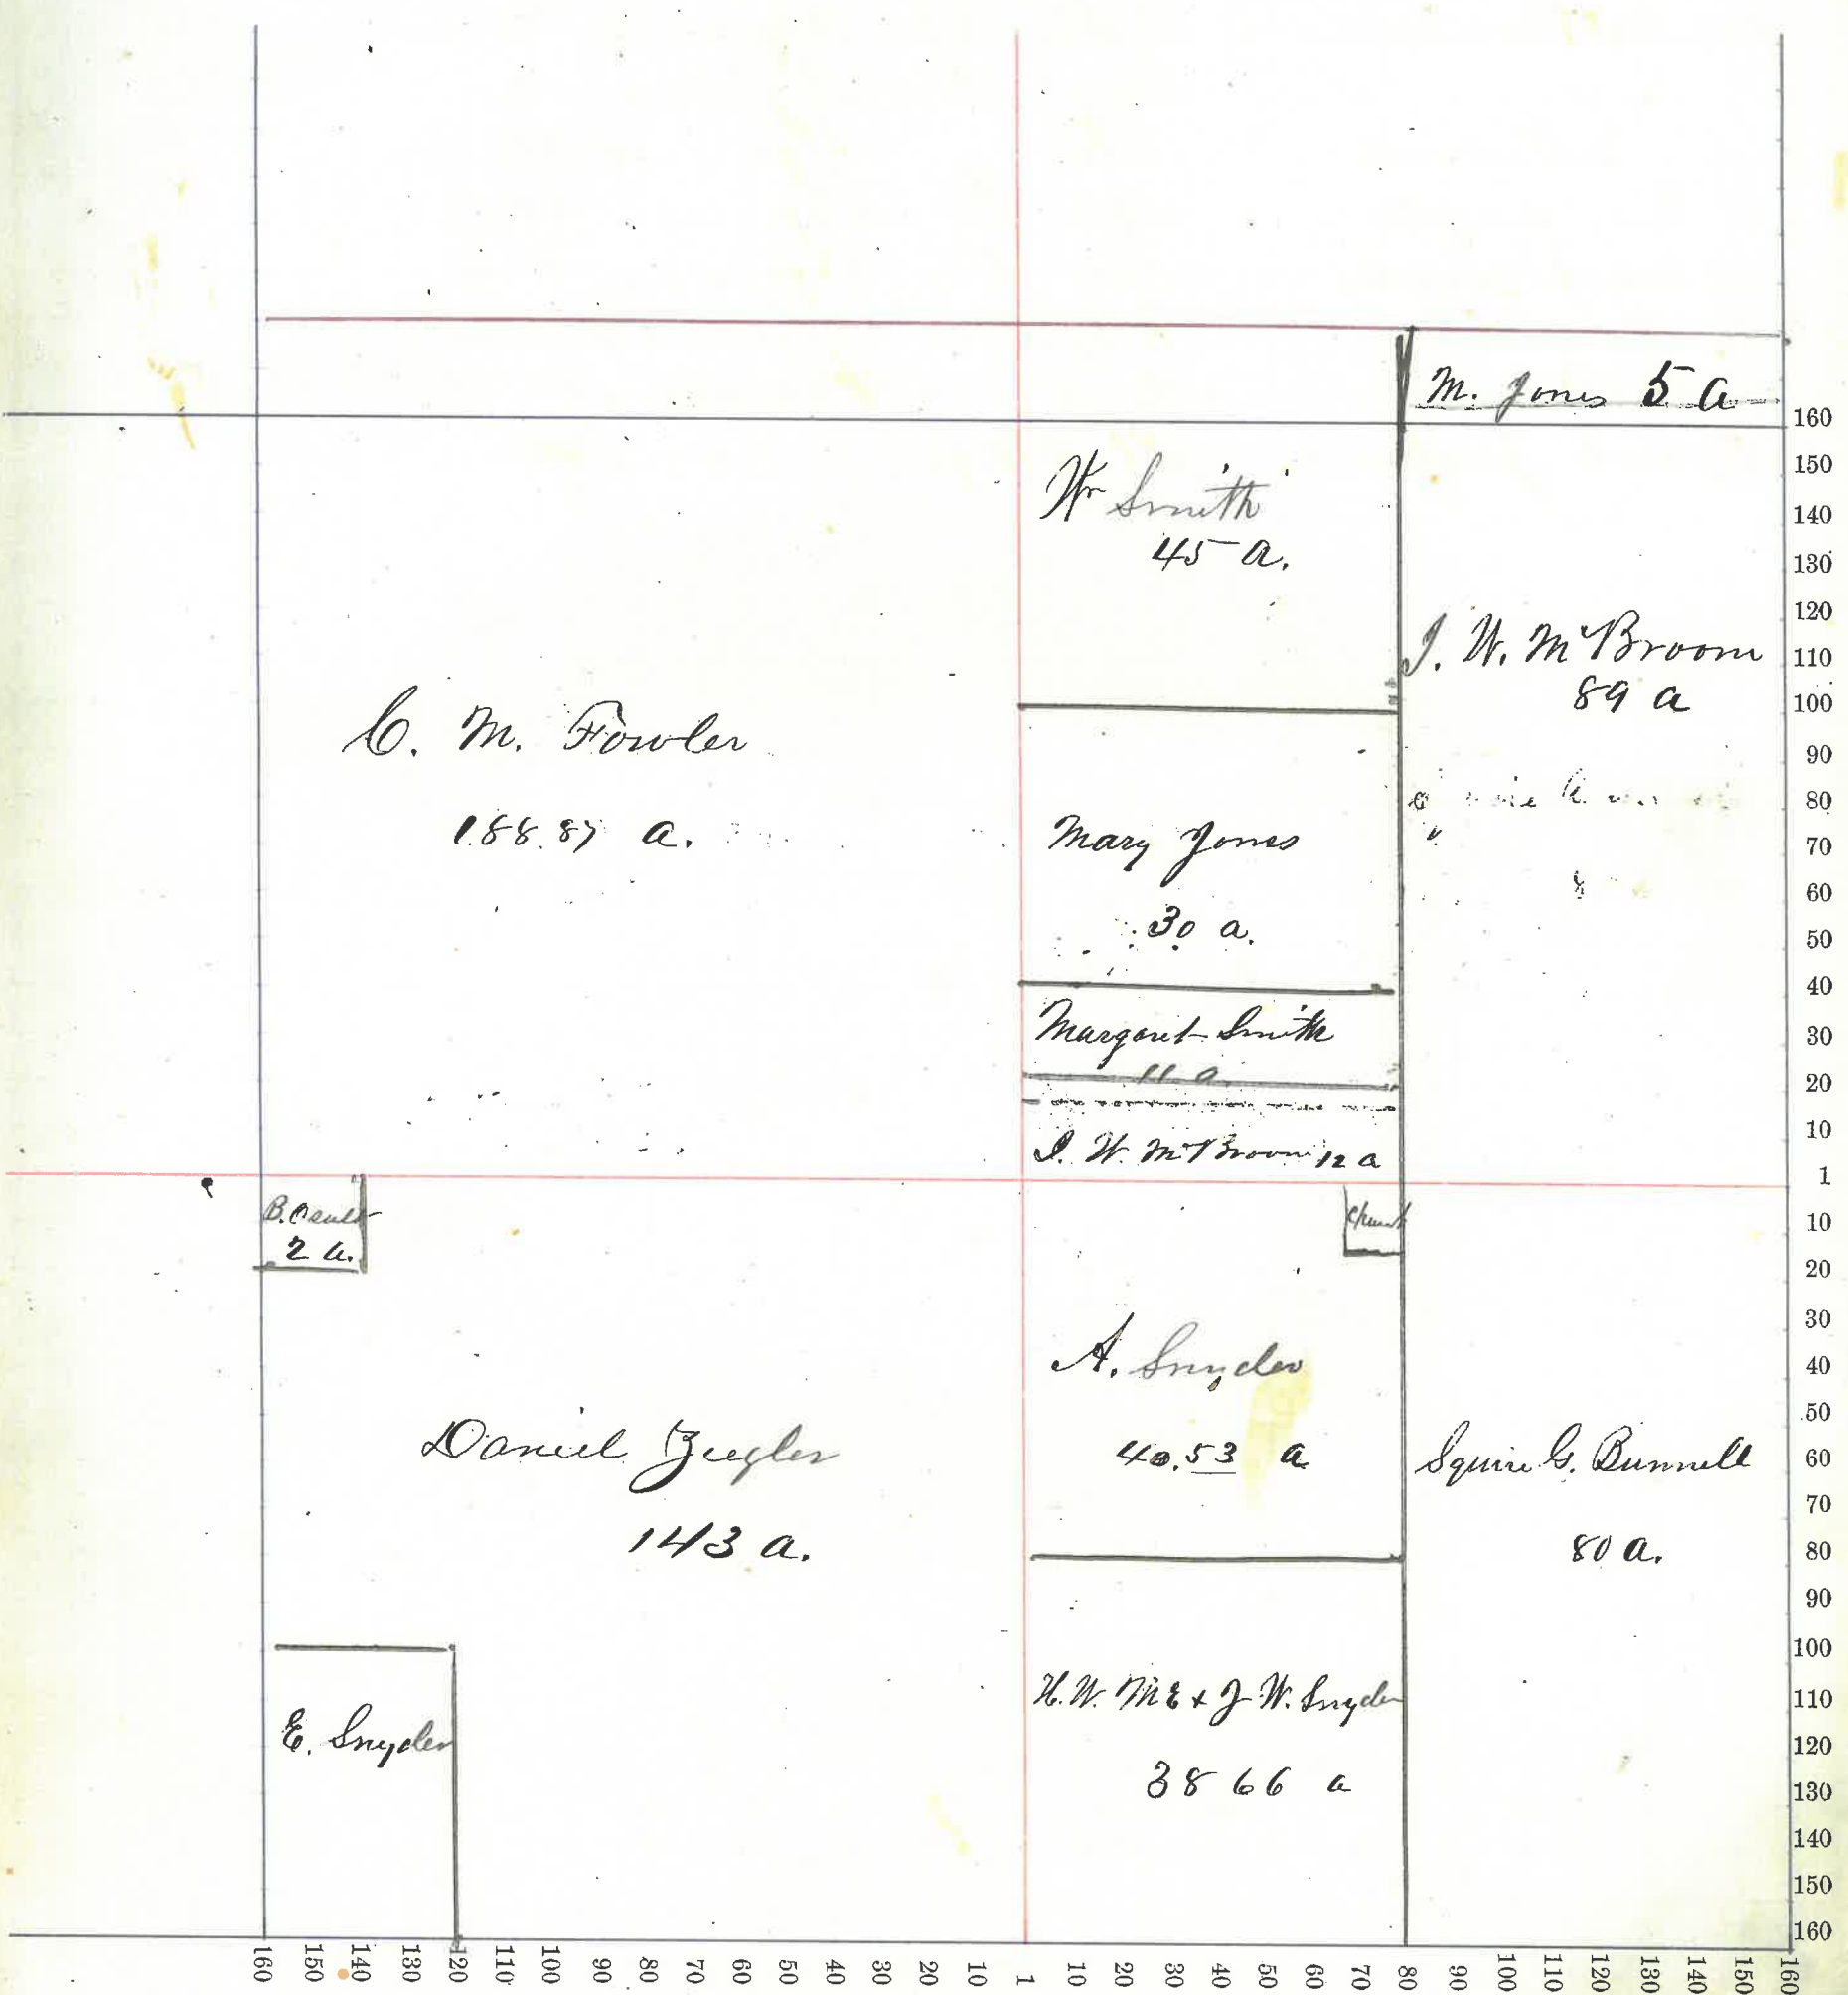 M. Jones 5 a
Wm Smith
45 a.
J. W. McBroom
89 a
C. M. Fowler
188.87 a.
Mary Jones
30 a.
Margaret Smith
11 a
J. W. McBroom 12 a
B.
2 a.
Church
A. Snyder
40.53 a
Daniel Zeigler
143 a.
Squire G. Bunnell
80 a.
E. Snyder
H. W. M E & J W. Snyder
38 66 a
160
150
140
130
120
110
100
90
80
70
60
50
40
30
20
10
1
10
20
30
40
50
60
70
80
90
100
110
120
130
140
150
160
160 150 140 130 120 110 100 90 80 70 60 50 40 30 20 10 1 10 20 30 40 50 60 70 80 90 100 110 120 130 140 150 160